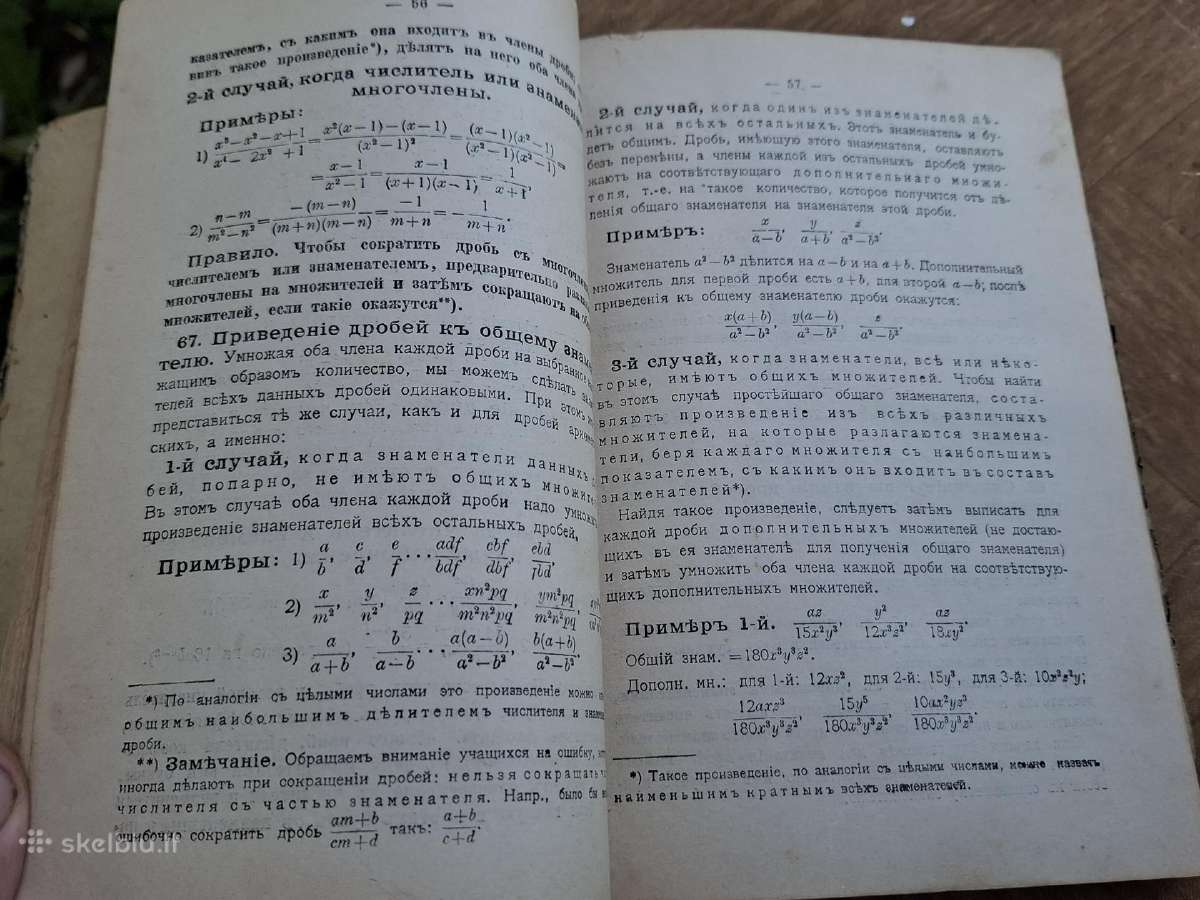 — 56 —
казателемъ, съ какимъ она входитъ въ члены дроби
вивъ такое произведеніе*), дѣлятъ на него оба члена
2-й случай, когда числитель или знамена
многочлены.
Примѣры:
1) x³—x²—x+1 / x⁴— 2x² +1 = x²(x—1)—(x—1) / (x²—1)² = (x—1)(x²—1) / (x²—1)(x²—1) =
= x—1 / x²—1 = x—1 / (x+1)(x—1) = 1 / x+1.
2) n—m / m²—n² = —(m—n) / (m+n)(m—n) = —1 / m+n = — 1 / m+n.
Правило. Чтобы сократить дробь съ многочле
числителемъ или знаменателемъ, предварительно разла
многочлены на множителей и затѣмъ сокращаютъ на об
множителей, если такіе окажутся**).
67. Приведеніе дробей къ общему знаме
телю. Умножая оба члена каждой дроби на выбранное
жащимъ образомъ количество, мы можемъ сдѣлать знам
телей всѣхъ данныхъ дробей одинаковыми. При этомъ
представиться тѣ же случаи, какъ и для дробей ариѳ
скихъ, а именно:
1-й случай, когда знаменатели данныхъ
бей, попарно, не имѣютъ общихъ множите
Въ этомъ случаѣ оба члена каждой дроби надо умножить
произведеніе знаменателей всѣхъ остальныхъ дробей,
Примѣры: 1) a/b, c/d, e/f ··· adf/bdf, cbf/dbf, ebd/fbd.
2) x/m², y/n², z/pq ··· xn²pq/m²n²pq, ym²pq/m²n²pq,
3) a/a+b, b/a—b ··· a(a—b)/a²—b², b(a+b)/a²—b².
*) По аналогіи съ цѣлыми числами это произведеніе можно
общимъ наибольшимъ дѣлителемъ числителя и знаме
дроби.
**) Замѣчаніе. Обращаемъ вниманіе учащихся на ошибку,
иногда дѣлаютъ при сокращеніи дробей: нельзя сокращать
числителя съ частью знаменателя. Напр., было бы
ошибочно сократить дробь am+b/cm+d такъ: a+b/c+d.
— 57 —
2-й случай, когда одинъ изъ знаменателей дѣ-
лится на всѣхъ остальныхъ. Этотъ знаменатель и бу-
детъ общимъ. Дробь, имѣющую этого знаменателя, оставляютъ
безъ перемѣны, а члены каждой изъ остальныхъ дробей умно-
жаютъ на соотвѣтствующаго дополнительнаго множи-
теля, т.-е. на такое количество, которое получится отъ дѣ-
ленія общаго знаменателя на знаменателя этой дроби.
Примѣръ: x/a—b, y/a+b, z/a²—b².
Знаменатель a²—b² дѣлится на a—b и на a+b. Дополнительный
множитель для первой дроби есть a+b, для второй a—b; послѣ
приведенія къ общему знаменателю дроби окажутся:
x(a+b)/a²—b², y(a—b)/a²—b², z/a²—b².
3-й случай, когда знаменатели, всѣ или нѣко-
торые, имѣютъ общихъ множителей. Чтобы найти
въ этомъ случаѣ простѣйшаго общаго знаменателя, соста-
вляютъ произведеніе изъ всѣхъ различныхъ
множителей, на которые разлагаются знамена-
тели, беря каждаго множителя съ наибольшимъ
показателемъ, съ какимъ онъ входитъ въ составъ
знаменателей*).
Найдя такое произведеніе, слѣдуетъ затѣмъ выписать для
каждой дроби дополнительныхъ множителей (не достаю-
щихъ въ ея знаменателѣ для полученія общаго знаменателя)
и затѣмъ умножить оба члена каждой дроби на соотвѣтствую-
щихъ дополнительныхъ множителей.
Примѣръ 1-й. az/15x²y³, y²/12x³z², az/18xy².
Общій знам. =180x³y³z².
Дополн. мн.: для 1-й: 12xz², для 2-й: 15y³, для 3-й: 10x²z²y;
12axz³/180x³y³z², 15y⁵/180x³y³z², 10ax²yz³/180x³y³z².
*) Такое произведеніе, по аналогіи съ цѣлыми числами, можно назвать
наименьшимъ кратнымъ всѣхъ знаменателей.
skelbiu.lt